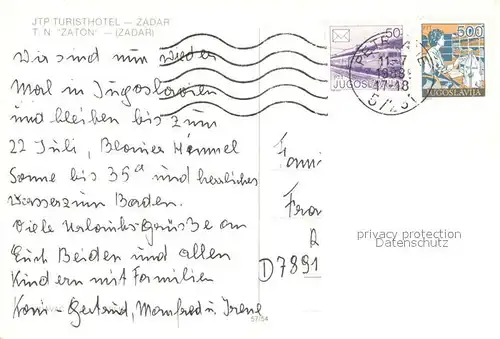 JTP TURISTHOTEL — ZADAR
T. N "ZATON" — (ZADAR)
Wir sind nun wieder
Mal in Jugoslavien
und bleiben bis zum
22 Juli, Blauer Himmel
Sonne bis 35° und herrliches
Wasser zum Baden.
Viele Urlaubsgrüße an
Euch Beiden und allen
Kindern mit Familien
Gertrud, Manfred u. Irene
50
JUGOSLAVIJA
500
JUGOSLAVIJA
11-7
1988
17-18
Fami
Fra
A
D7891
privacy protection
Datenschutz
57/54